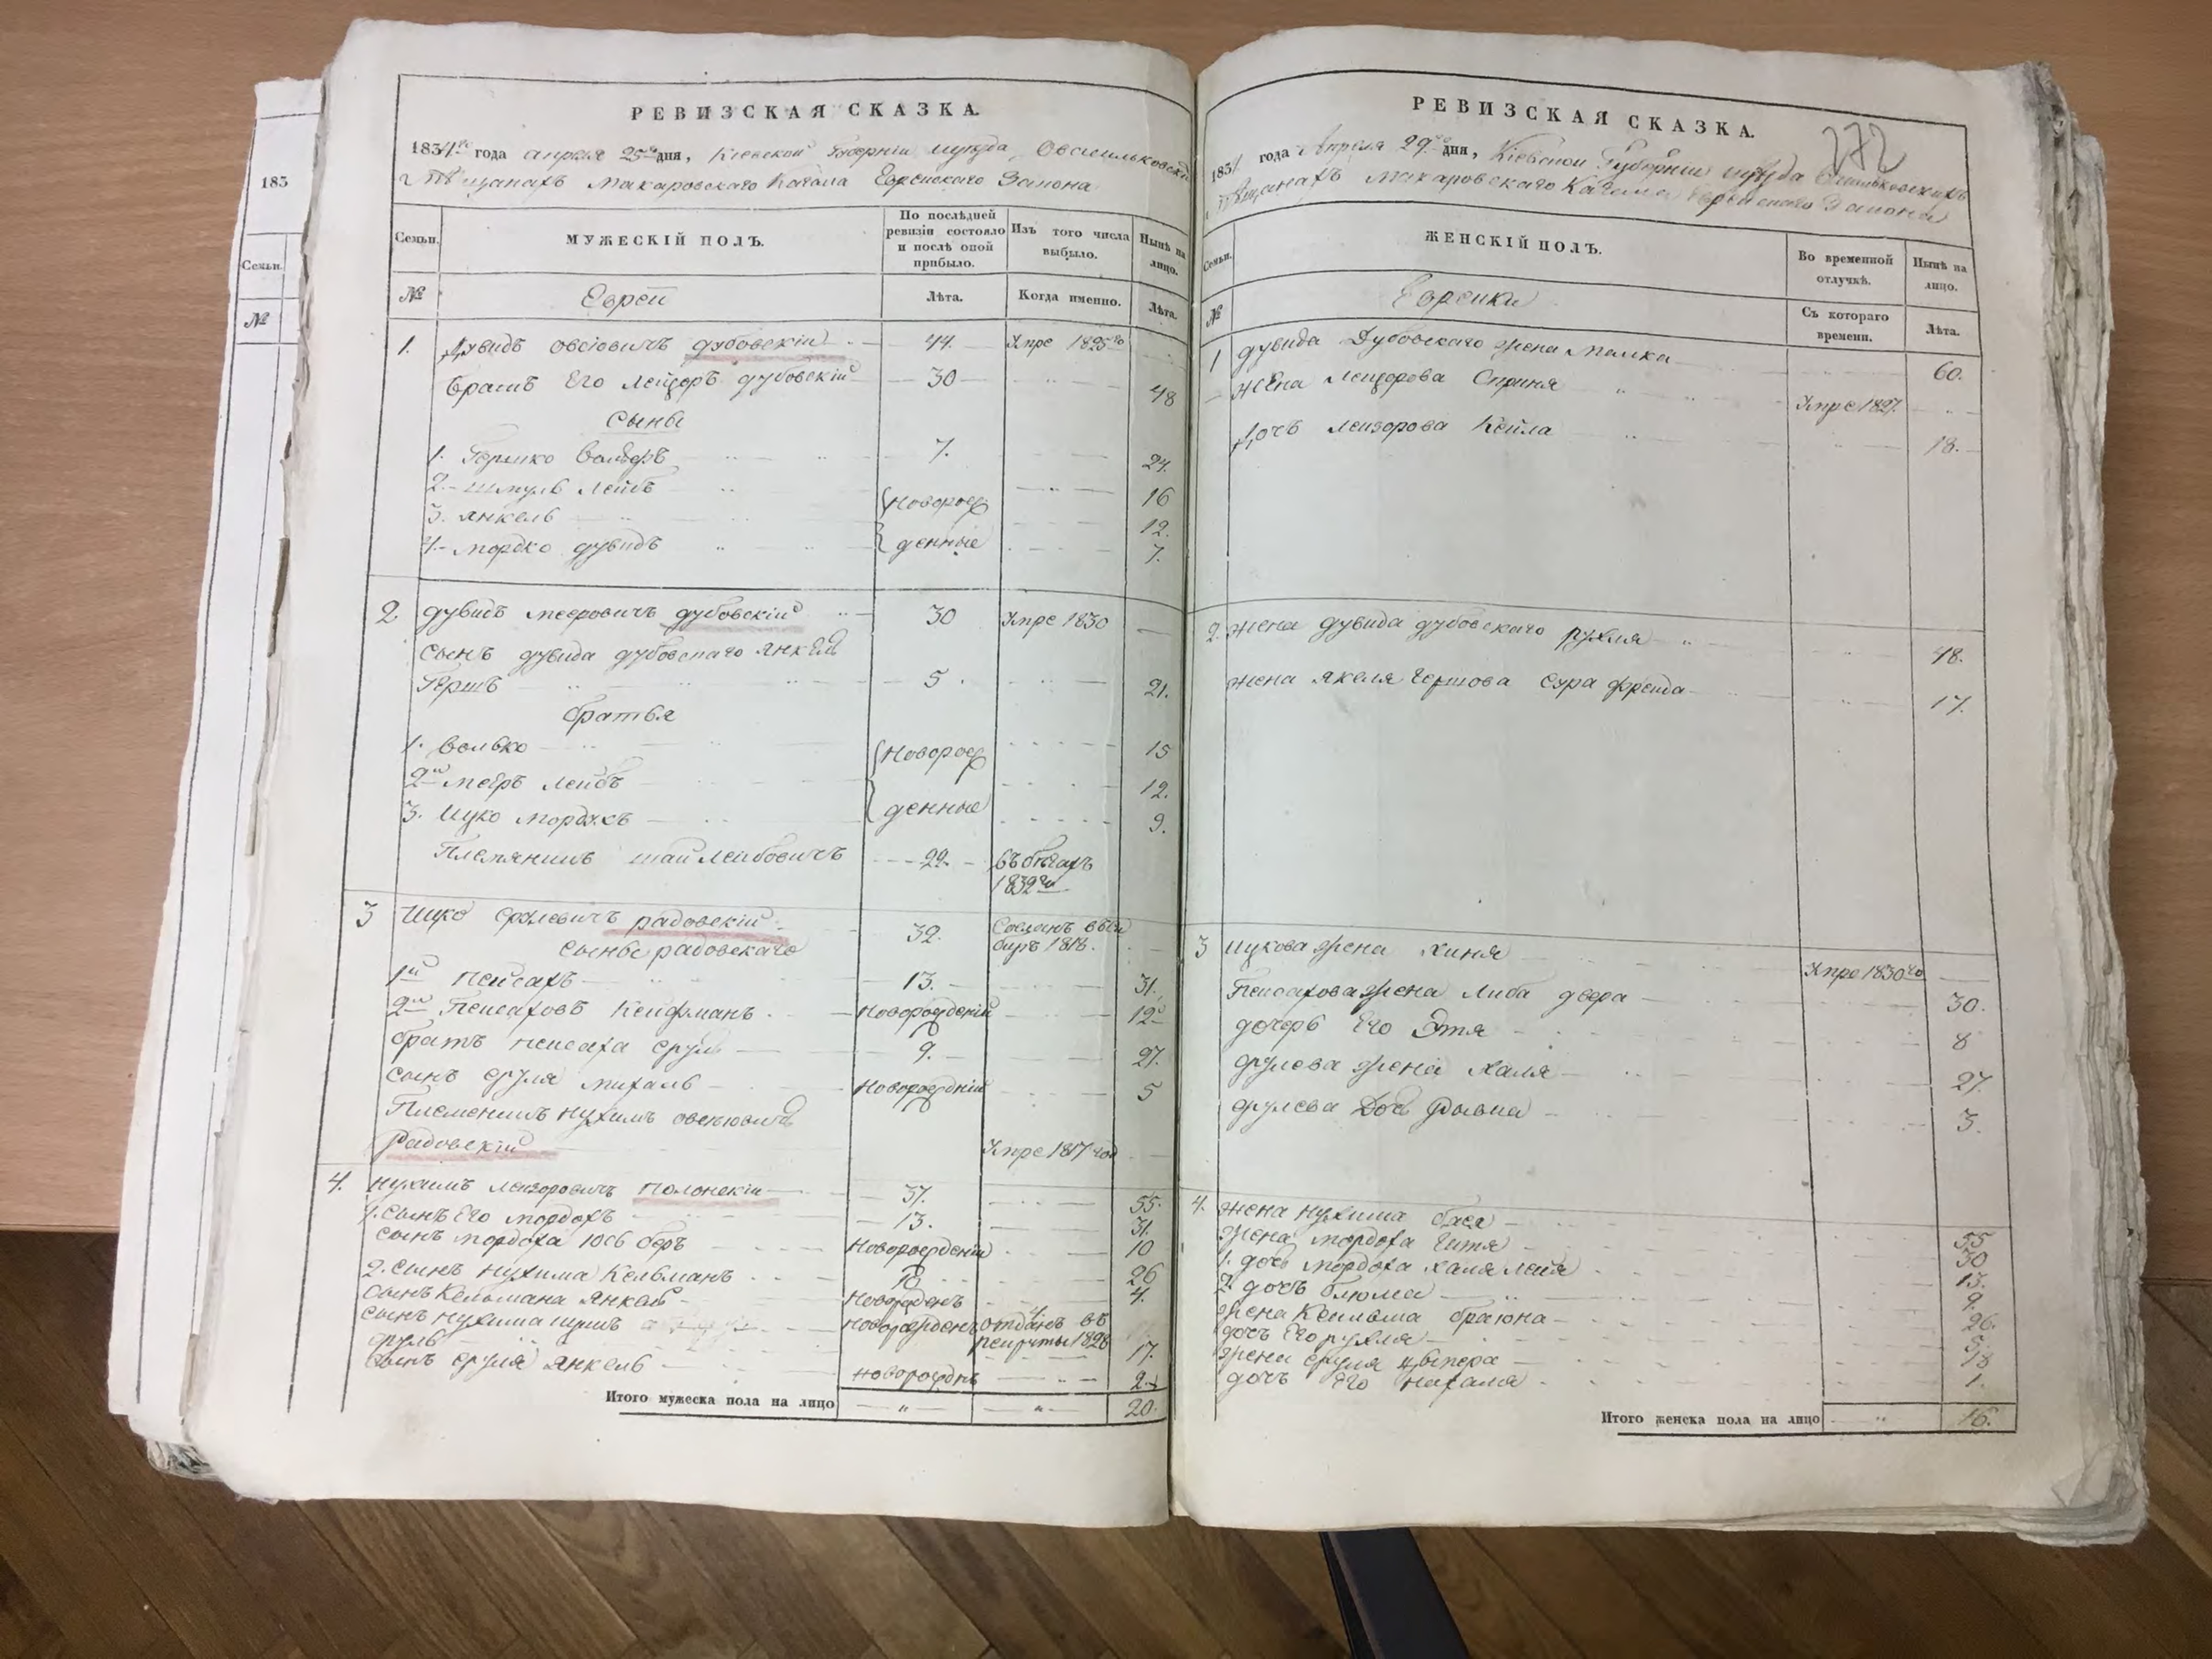 183
Семьи.
№
РЕВИЗСКАЯ СКАЗКА.
1834го года апреля 25го дня, Кіевской Губерніи
Мѣщанахъ Макаровскаго Кагала Еврейскаго Закона
Семьи.
МУЖЕСКІЙ ПОЛЪ.
По послѣдней ревизіи состояло и послѣ оной прибыло.
Изъ того числа выбыло.
Нынѣ на лицо.
№
Евреи
Лѣта.
Когда именно.
Лѣта.
1. Дувидъ Овсіовичъ дубовскій 44. Умре 1825го
братъ Его Лейзоръ дубовскій 30 48
Сыны
1. Гершко Вольфъ 7. 24.
2. Шмуль Лейбъ Новорож 16
3. Янкель 12.
4. Мордко дувидъ денные 7.
2 дувидъ Мееровичъ дубовскій 30 Умре 1830
Сынъ дувида дубовскаго Янкель
Гершъ 5. 21.
братья
1. Волько Новорож 15
2й Меѣръ Лейбъ 12.
3. Ицко Мордхъ денные 9.
Племяникъ Шай Лейбовичъ 22. въ бѣгахъ
1832го
3 Ицко Срулевичъ радовскій 32. Сосланъ въ Си
биръ 1818.
Сыны радовскаго
1й Пейсахъ 13. 31.
2й Пейсаховъ Кейфманъ Новорожденій 12
братъ Пейсаха Сруль 9. 27.
Сынъ Сруля Михаль Новорожденій 5
Племеникъ Нухимъ Овсеіовичъ
Радовскій Умре 1817 год
4. Нухимъ Лейзоровичъ Полонскій 37. 55.
1. Сынъ Его Мордохъ 13. 31.
Сынъ Мордоха Іосъ беръ Новорожденій 10
2. Сынъ Нухима Кельманъ 8. 26
Сынъ Кельмана Янкель Новорожденъ 4.
Сынъ Нухима Новорожденъ отданъ въ
рекруты 1828
Сруль 17.
Сынъ Сруля Янкель новорожднъ 2
Итого мужеска пола на лицо 20.
РЕВИЗСКАЯ СКАЗКА.
272
1834 года Апреля 29го дня, Кіевской Губерніи
Мѣщанахъ Макаровскаго Кагала Еврейскаго Закона
Семьи.
ЖЕНСКІЙ ПОЛЪ.
Во временной отлучкѣ.
Нынѣ на лицо.
№
Еврейки
Съ котораго времени.
Лѣта.
1 дувида Дубовскаго жена Малка 60.
жена Лейзорова Сприня Умре 1827.
Дочь Лейзорова Кейла 18.
2. жена дувида дубовскаго Рухля 48.
жена Якеля Гершова Сура Фрейда 17.
3 Ицкова жена Хиня Умре 1830го
Пейсахова жена Либа двера 30.
дочеръ Его Этя 8
Срулева жена Халя 27.
Срулева Дочь 3.
4. жена Нухима бася 55
жена Мордоха Гитя 30
1. дочь Мордоха Халя Лейя 13.
2. дочь блюма 9.
жена Кельмана браюна 26.
дочь Его рухля 5.
жена Сруля Ципера 18
дочь Его Нахама 1.
Итого женска пола на лицо 16.